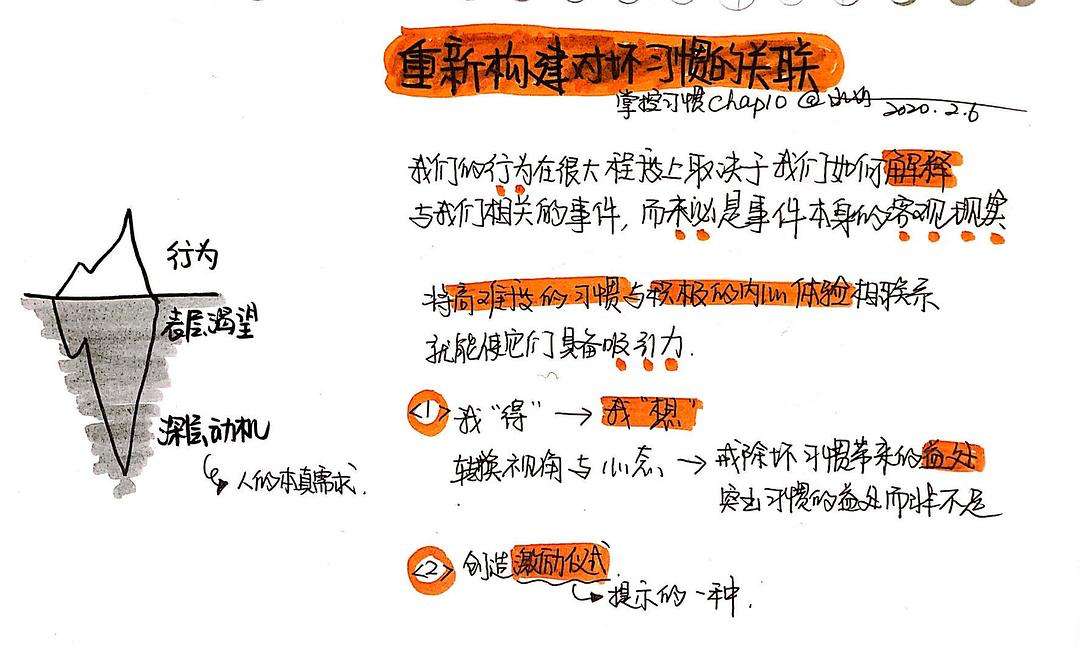 重新构建对坏习惯的关联
掌控习惯Chap10 @
2020.2.6
我们的行为在很大程度上取决于我们如何解释
与我们相关的事件，而未必是事件本身的客观现实
将高难度的习惯与积极的内心体验相联系
就能使它们具备吸引力.
<1> 我“得” → 我“想”
转换视角与心态 → 戒除坏习惯带来的益处
突出习惯的益处而非不足
<2> 创造激励仪式
提示的一种.
行为
表层渴望
深层动机
人的本真需求.